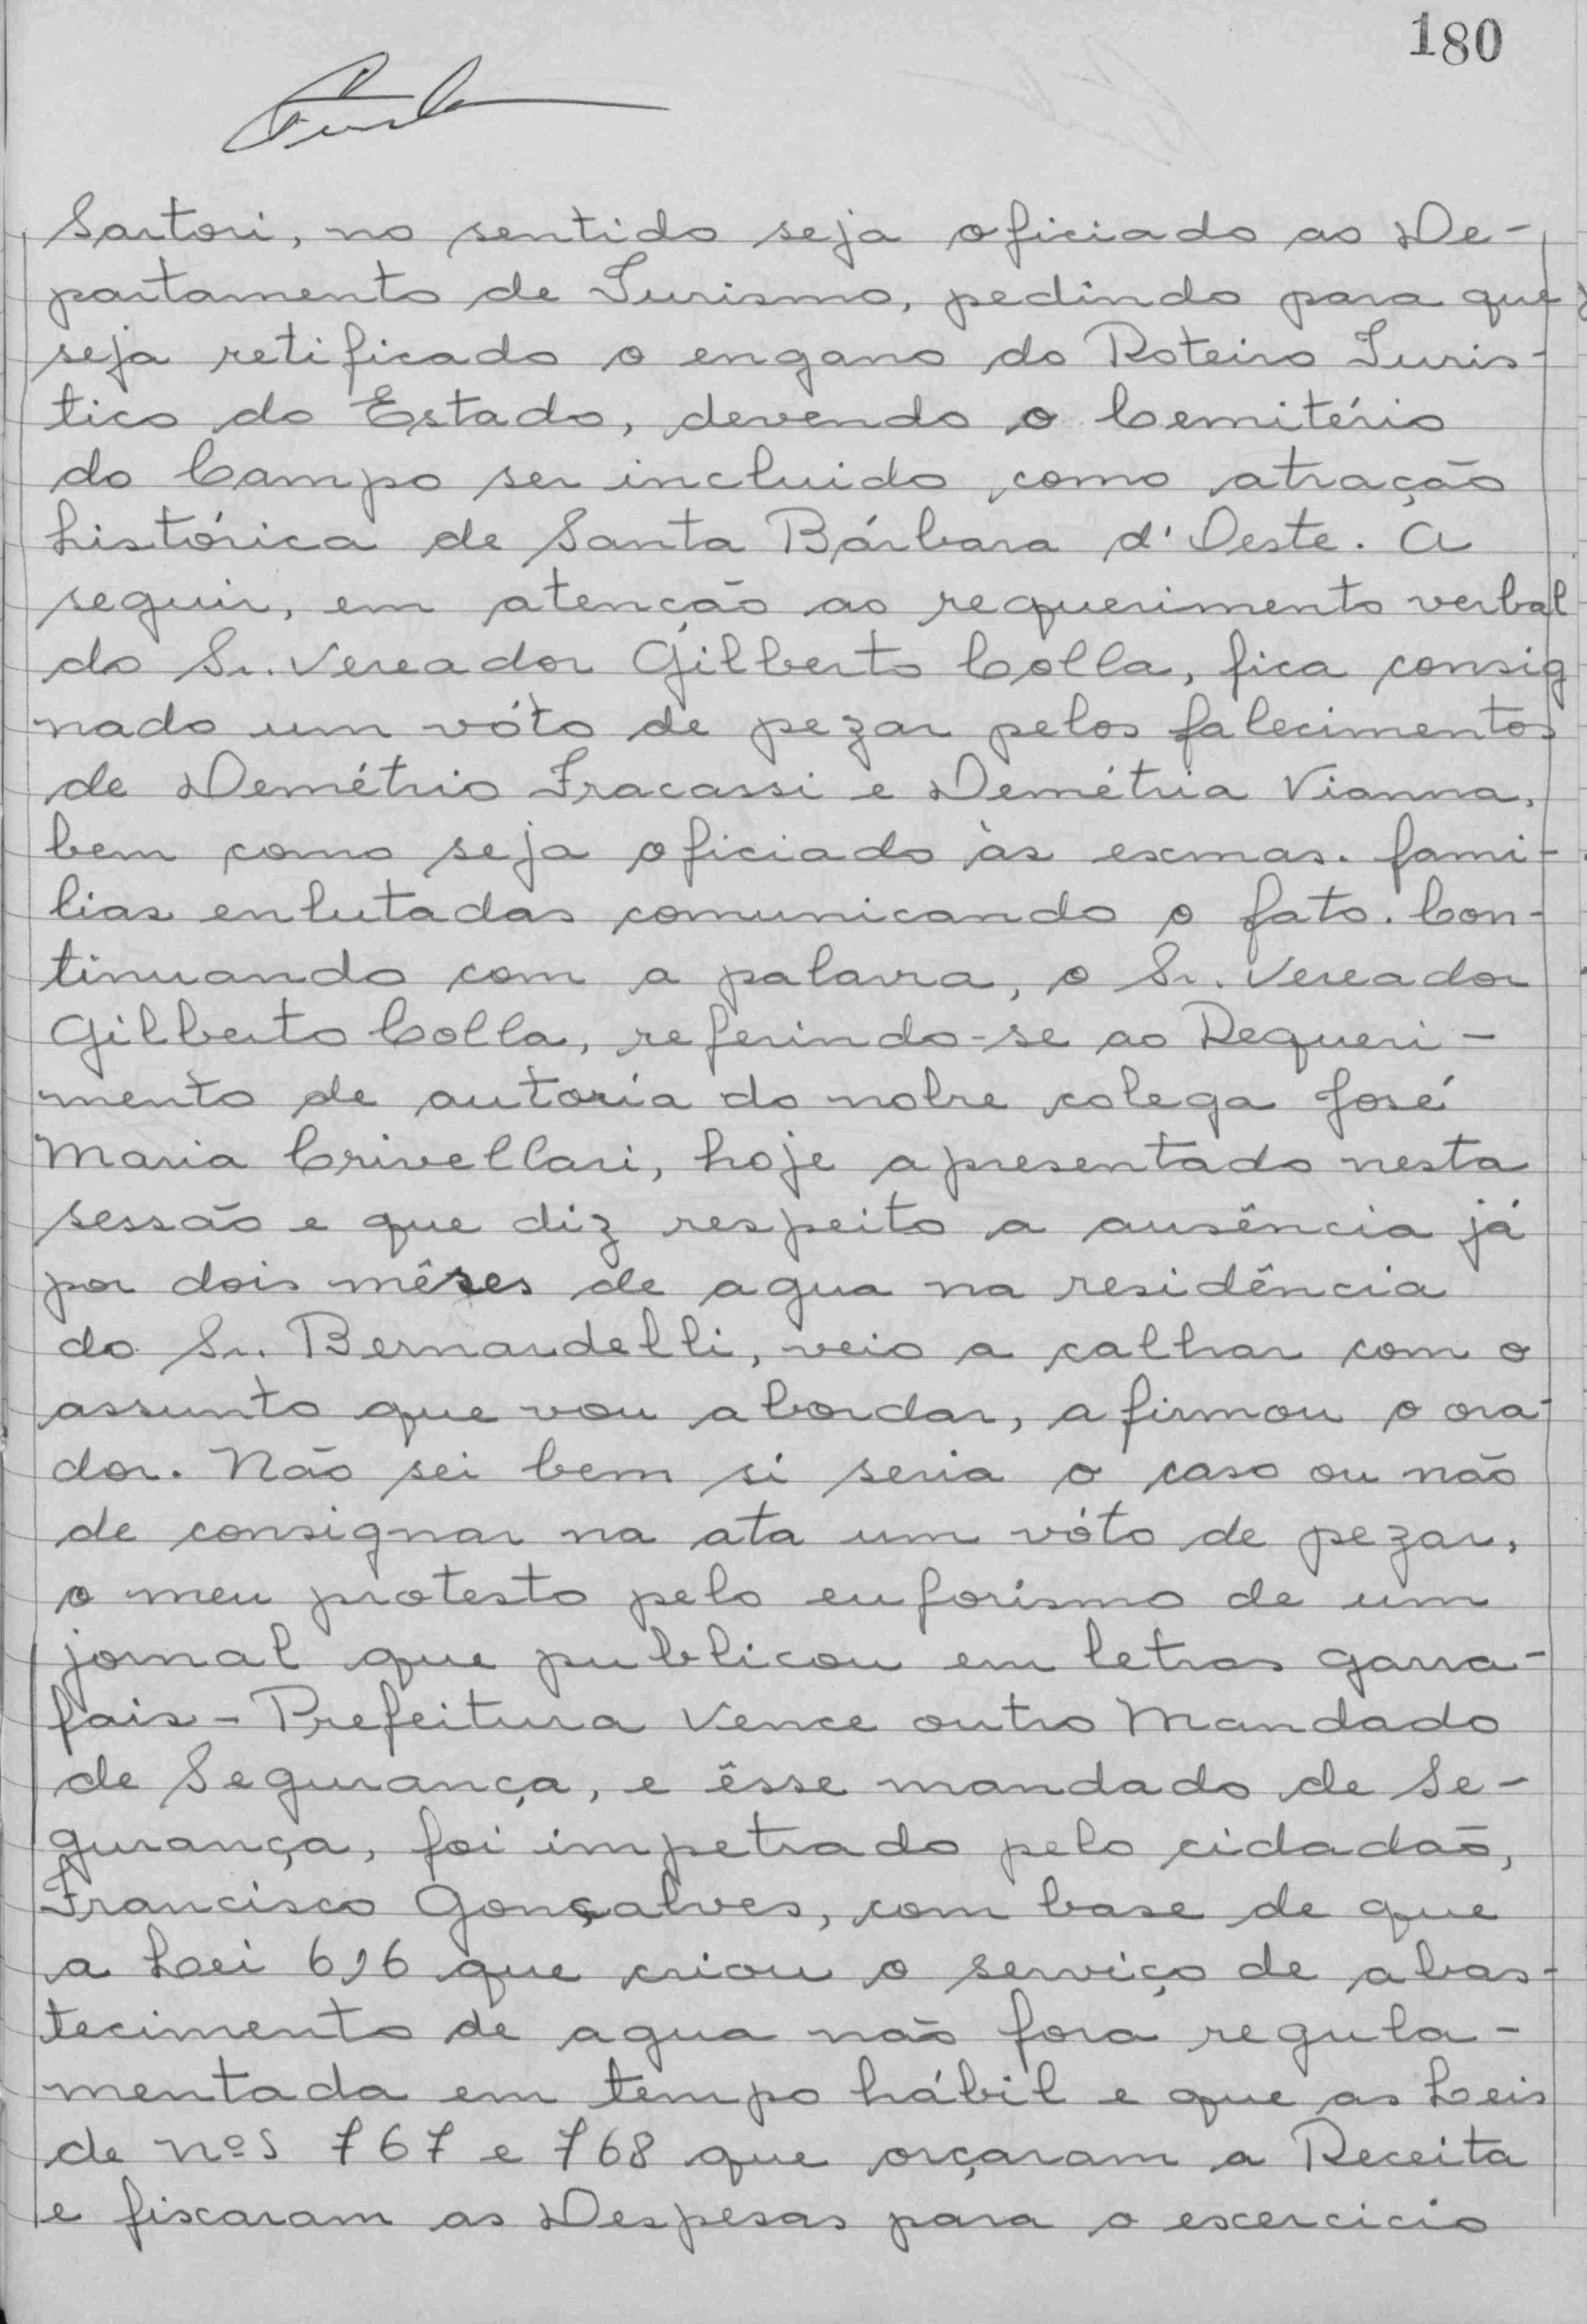 180
Sartori, no sentido seja oficiado ao De-
partamento de Turismo, pedindo para que
seja retificado o engano do Roteiro Turis-
tico do Estado, devendo o Cemitério
do Campo ser incluido como atração
histórica de Santa Bárbara d'Oeste. A
seguir, em atenção ao requerimento verbal
do Sr. Vereador Gilberto Colla, fica consig
nado um vóto de pezar pelos falecimentos
de Demétrio Fracassi e Demétria Vianna,
bem como seja oficiado às exmas. fami-
lias enlutadas comunicando o fato. Con-
tinuando com a palavra, o Sr. Vereador
Gilberto Colla, referindo-se ao Requeri-
mento de autoria do nobre colega José
Maria Crivellari, hoje apresentado nesta
sessão e que diz respeito a ausência já
por dois mêses de agua na residência
do Sr. Bernardelli, veio a calhar com o
assunto que vou abordar, afirmou o ora-
dor. Não sei bem si seria o caso ou não
de consignar na ata um vóto de pezar,
o meu protesto pelo euforismo de um
jornal que publicou em letras garra-
fais - Prefeitura Vence outro Mandado
de Segurança, e êsse mandado de Se-
gurança, foi impetrado pelo cidadão,
Francisco Gonçalves, com base de que
a Lei 616 que criou o serviço de abas-
tecimento de agua não fora regula-
mentada em tempo hábil e que as Leis
de nºs 767 e 768 que orçaram a Receita
e fixaram as Despesas para o exercicio